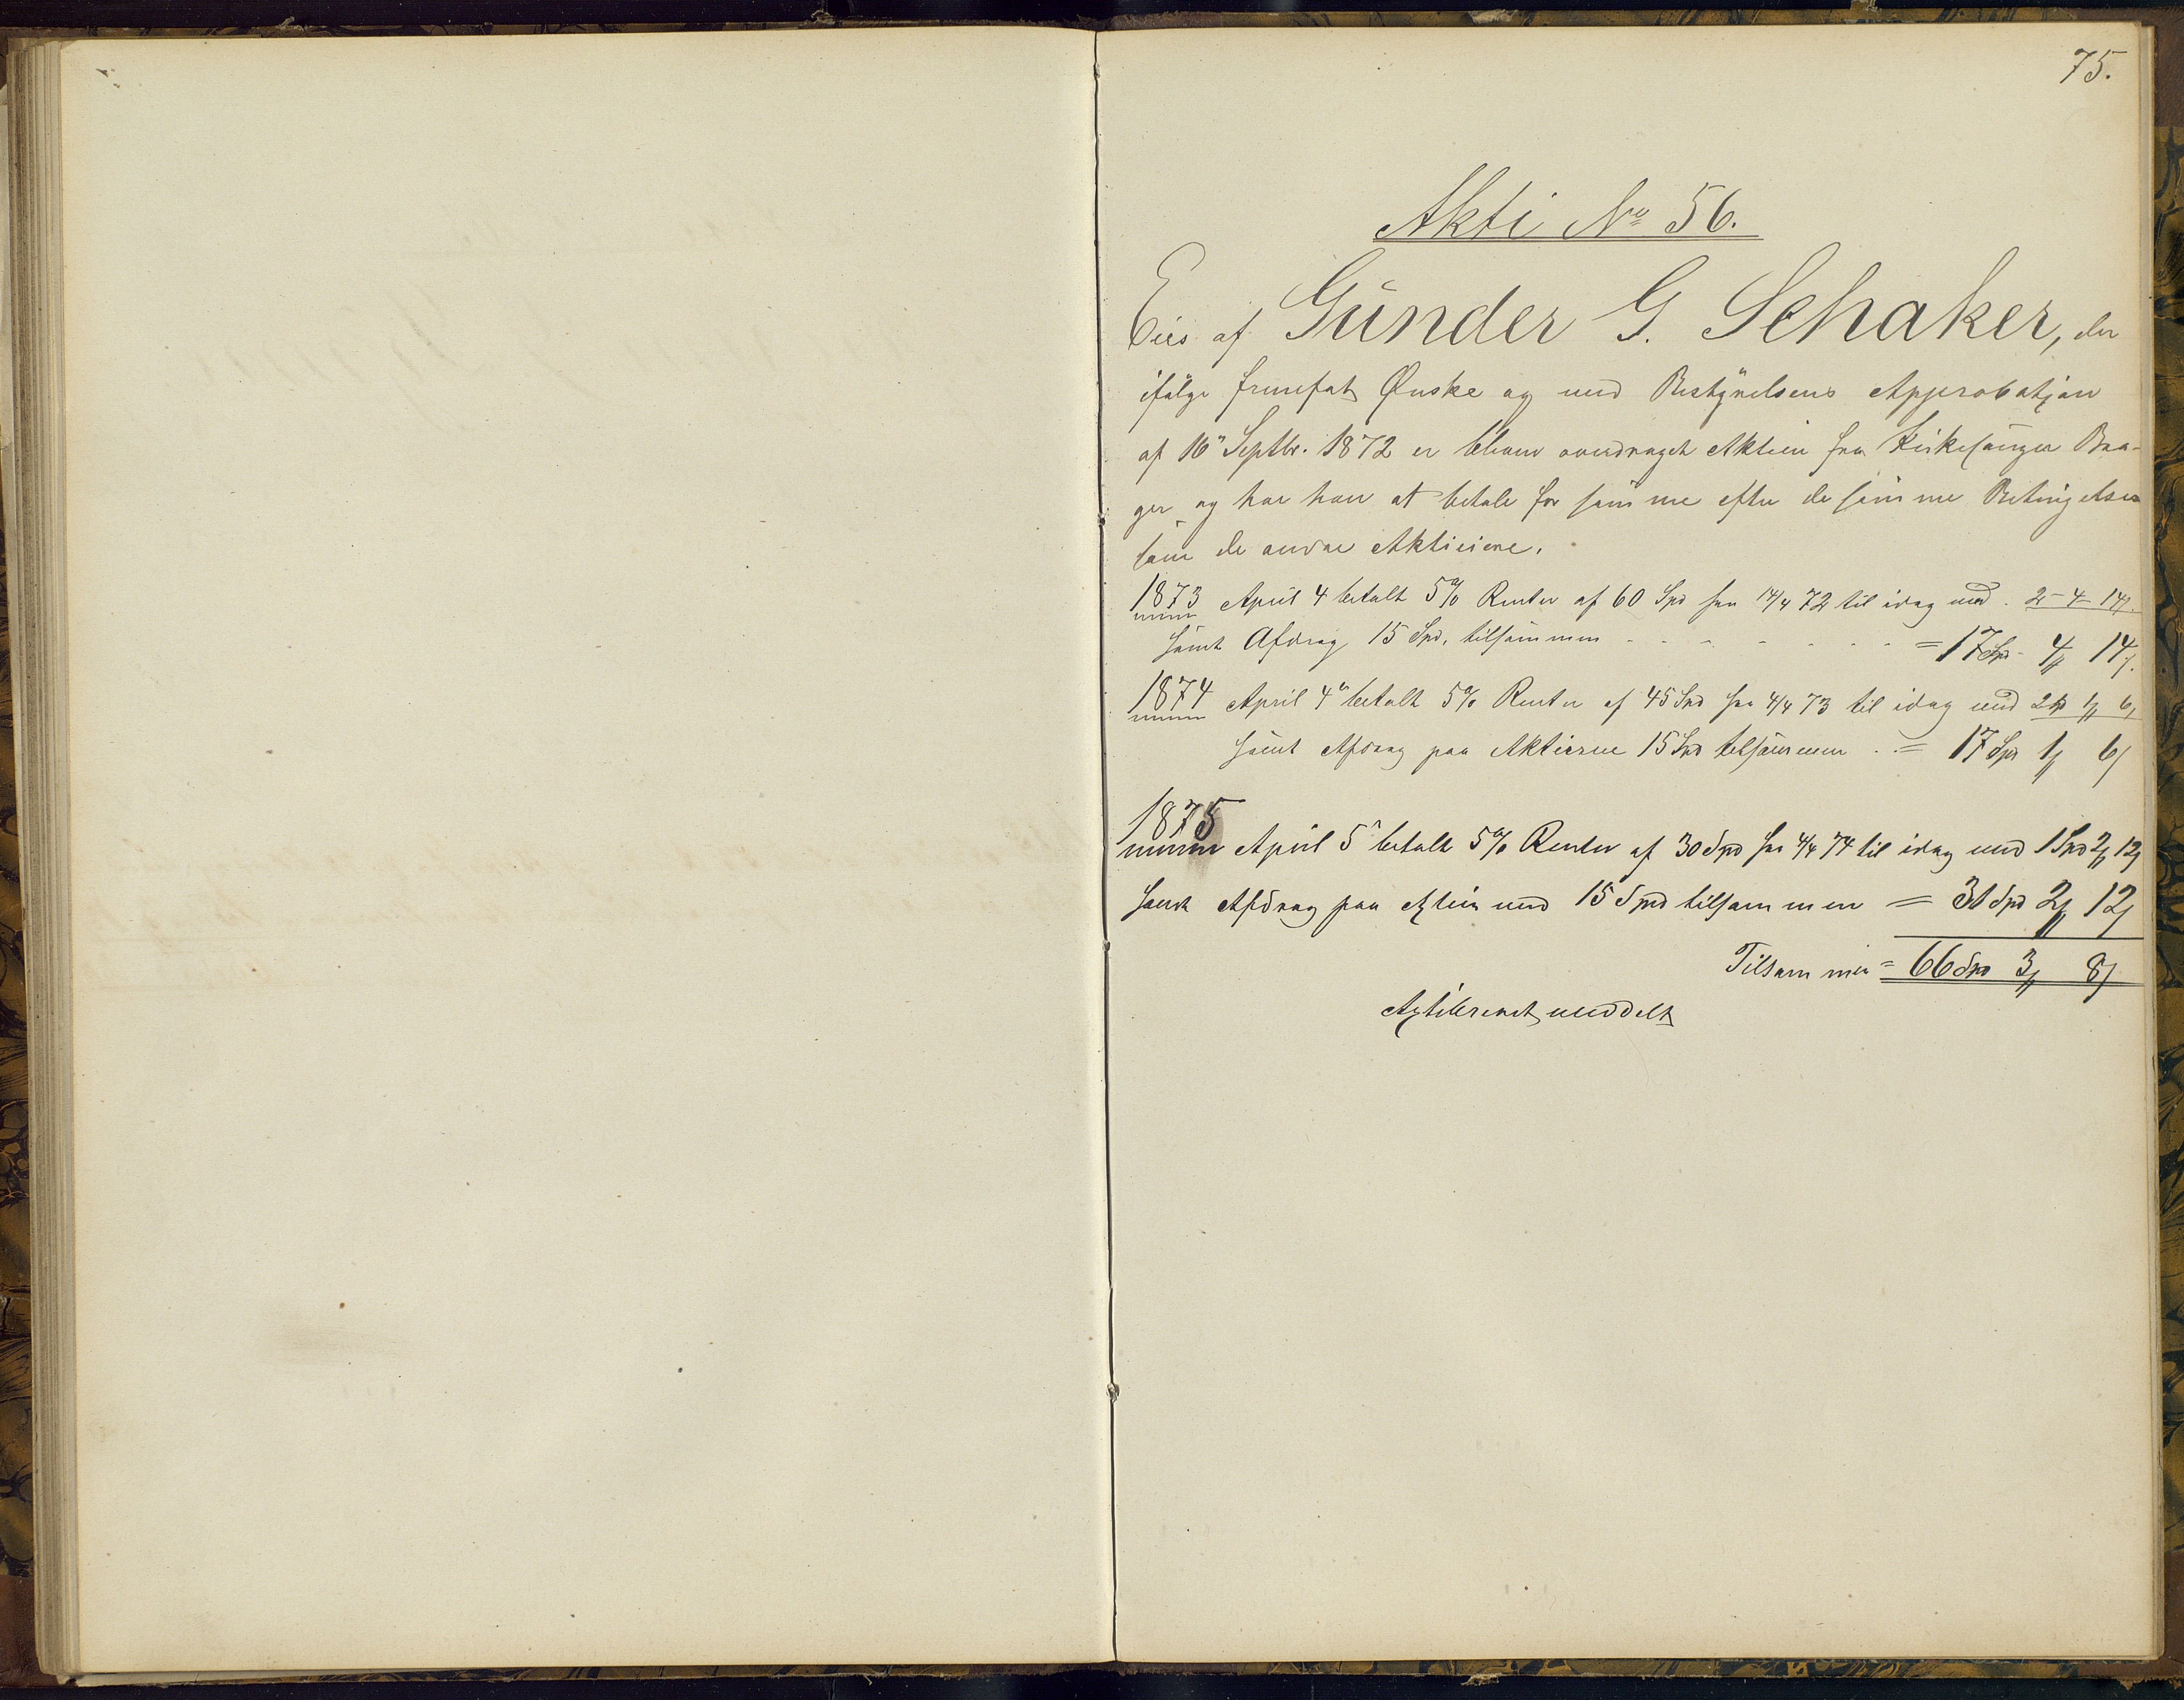 75.
Akti No 56.
Eies af Gunder G. Sehaker, der
ifölge fremsat Ønske og med Bestyrelsens Approbatjon
af 16" Septbr. 1872 er bleven overdraget Aktien fra Kirkesanger Baa-
ger og har han at betale for samme efter de samme Betingelser
som de andre Aktieiere.
1873 April 4 betalt 5% Renter af 60 Spd fra 14/4 72 til idag med . 2 - 4 - 14
samt Afdrag 15 Spd, tilsammen - - - - - - = 17 Spd - 4 14
1874 April 4" betalt 5% Renter af 45 Spd fra 4/4 73 til idag med 2 1 6
samt Afdrag paa Aktierne 15 Spd tilsammen . = 17 Spd 1 6
1875
April 5" betalt 5% Renter af 30 Spd fra 4/4 74 til idag med 1 Spd 2 12
samt Afdrag paa Aktien med 15 Spd tilsammen = 31 Spd 2 12
Tilsammen = 66 Spd 3 8
Aktiebrevet meddelt